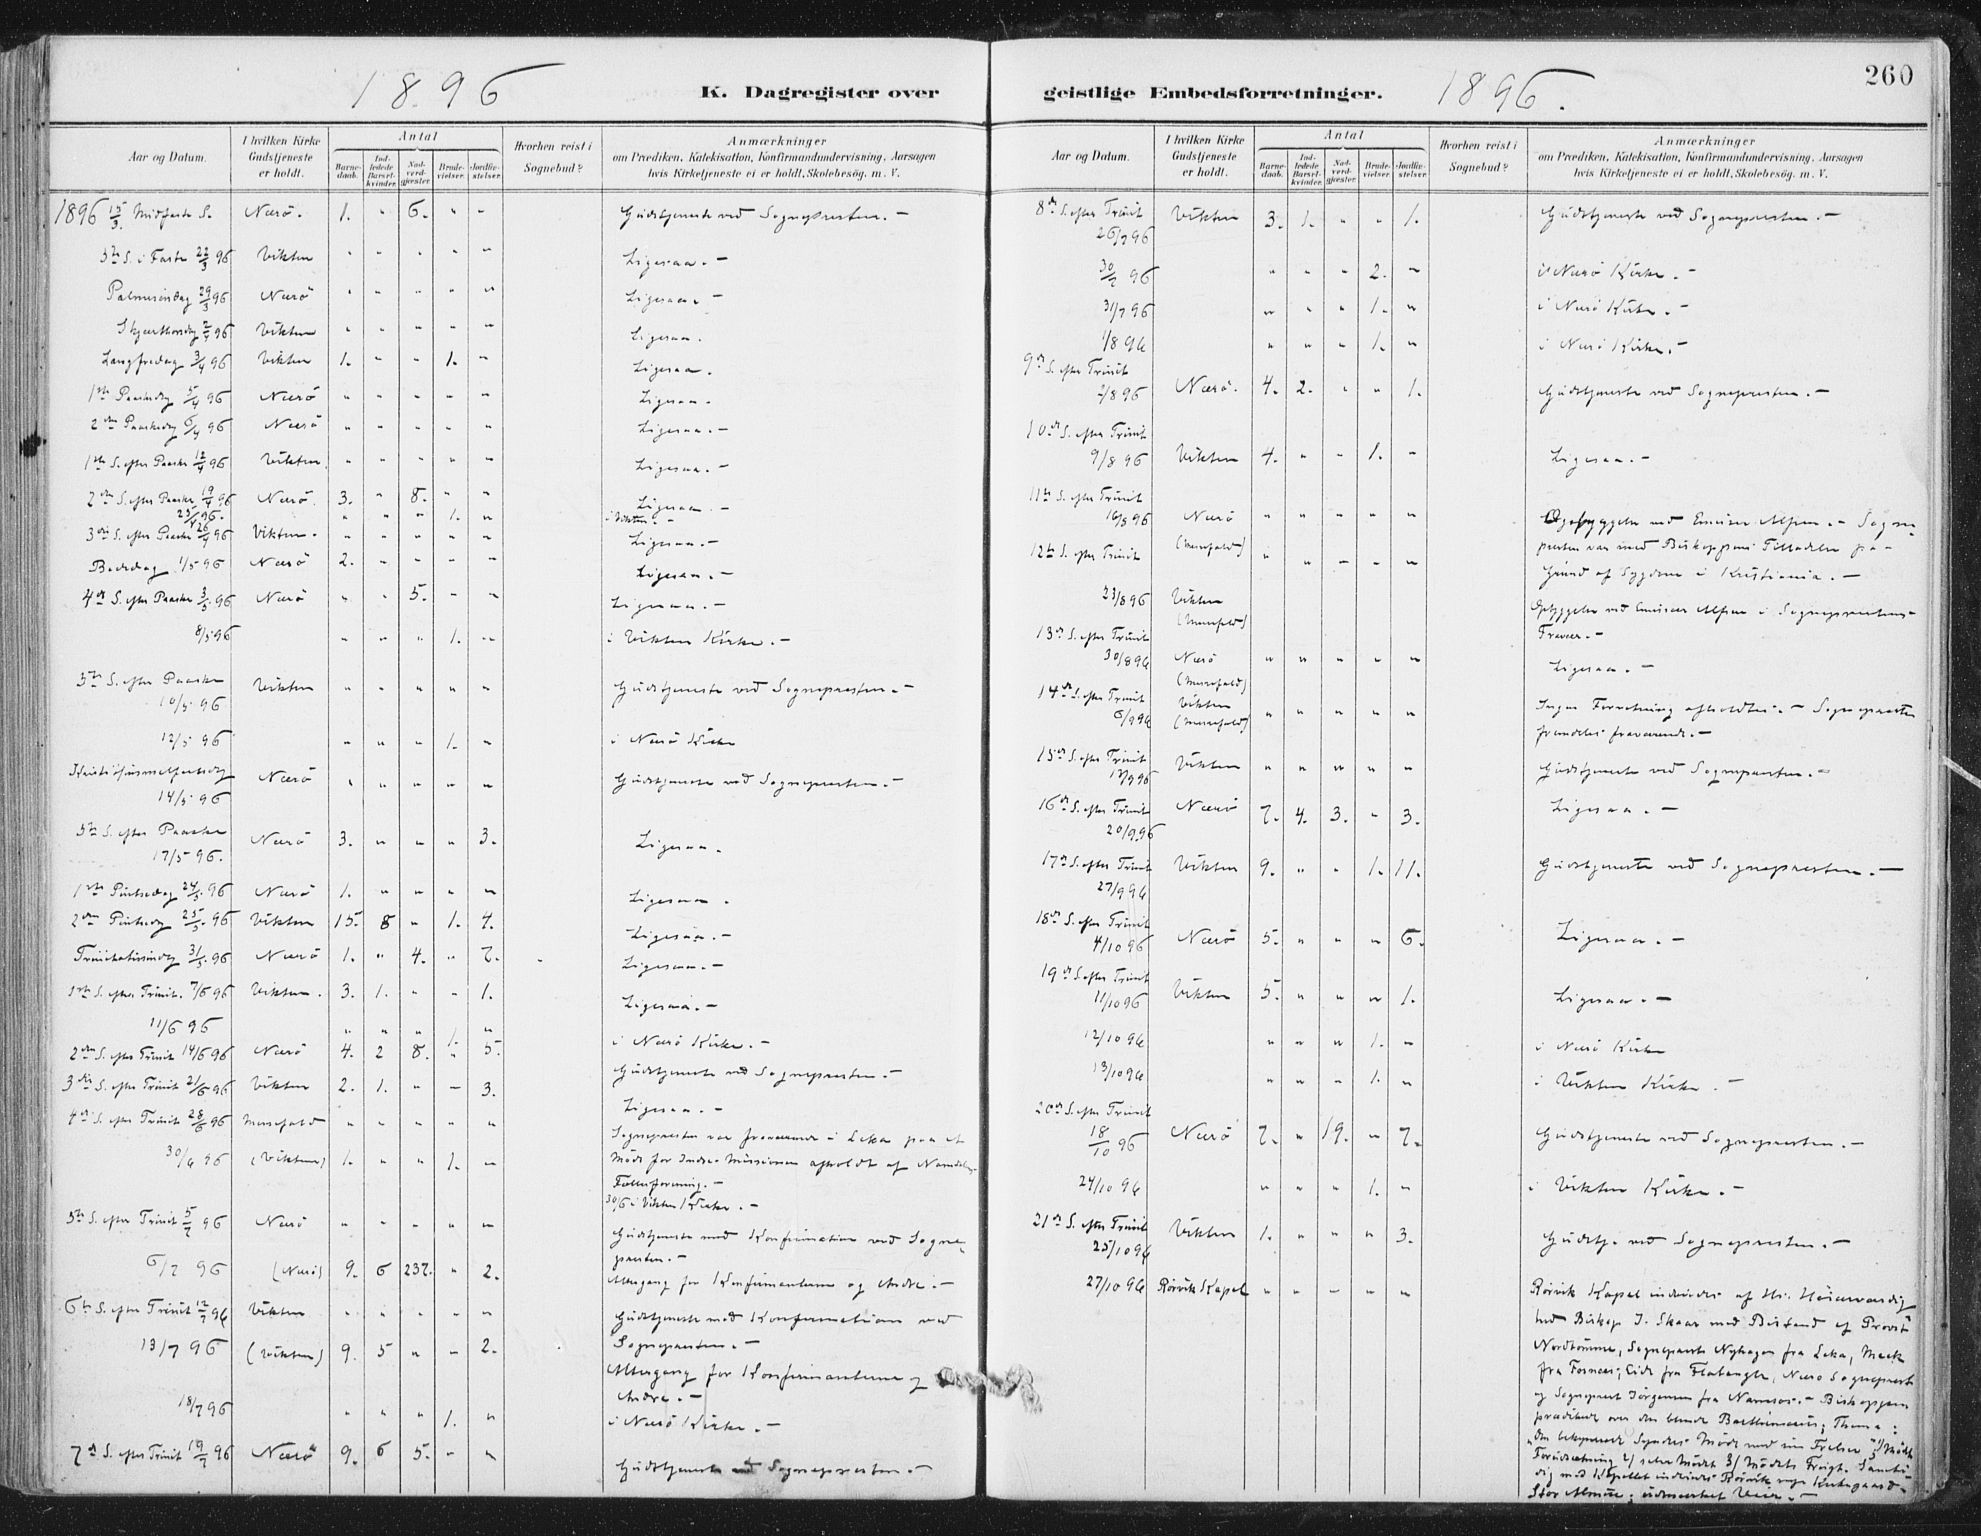 1896 K. Dagregister over
Aar og Datum. I hvilken Kirke Gudstjeneste er holdt. Antal Hvorhen reist i Sognebud? Anmærkninger
Barnedaab. Indledede Barselkvinder. Nadverdgjæster. Brudevielser. Jordfæstelser. om Prædiken, Katekisation, Konfirmandundervisning, Aarsagen
hvis Kirketjeneste ei er holdt, Skolebesøg. m. V.
1896 15/3. Midfaste S. Nærö. 1. " 6. " " Gudstjeneste ved Sognepresten. –
5te S. i Faste 22/3 96 Vikten " " " " " Ligesaa. –
Palmesöndag 29/3 96 Nærö " " " " " Ligesaa. –
Skjærthorsdag 2/4 96 Vikten " " " " " Ligesaa.
Langfredag 3/4 96 Vikten 1. " " 1. " Ligesaa.
1ste Paaskedag 5/4 96 Nærö " " " " " Ligesaa.
2den Paaskedag 6/4 96 Nærö " " " " " Ligesaa. –
1ste S. efter Paaske 12/4 96 Vikten. " " " " " Ligesaa. –
2den S. efter Paaske 19/4 96 Nærö. 3. " 8. " " Ligesaa. –
25/4 96. " " " 1. " i Vikten. –
3die S. efter Paaske 26/4 96 Vikten. " " " " " Ligesaa. –
Bededag 1/5 96 Nærö 2. " " " " Ligesaa. –
4de S. efter Paaske 3/5 96 Nærö " " 5. " " Ligesaa. –
8/5 96 " " " 1. " i Vikten Kirke. –
5te S. efter Paaske
10/5 96 Vikten " " " " " Gudstjeneste ved Sognepresten. –
12/5 96 " " " 1. " i Nærö Kirke
Kristi Himmelfartsdag
14/5 96 Nærö " " " " " Gudstjeneste ved Sognepresten. –
5te S. efter Paaske
17/5 96. Nærö 3. " " " 3. Ligesaa.
1ste Pintsedag 24/5 96 Nærö 1. " " " " Ligesaa.
2den Pintsedag 25/5 96 Vikten 15. 8 " 1. 4. Ligesaa. –
Trinitatissöndag 31/5 96 Nærö 1. " 4. " 7. Ligesaa. –
1ste S. efter Trinit. 7/6 96 Vikten. 3. 1. " " 1. Ligesaa. –
11/6 96 " " " 1. " i Nærö Kirke. –
2den S. efter Trinit 14/6 96 Nærö 4. 2 8. " 5. Gudstjeneste ved Sognepresten. –
3die S. efter Trinit 21/6 96 Vikten 2. 1. " " 3. Ligesaa. –
4de S. efter Trinit 28/6 96 Messefald " " " " " Sognepresten var fraværende i Leka paa et
30/6 96 (Vikten) 1. " " 1. " Möde for Indre Missionen afholdt af Namdalens
Fællesforening. –
30/6 i Vikten Kirke. –
5te S. efter Trinit 5/7 96 Nærö " " " " " Gudstjeneste med Konfirmation ved Sogne-
presten. –
6/7 96 (Nærö) 9. 6 237. " 2. Altergang for Konfirmanterne og Andre. –
6te S. efter Trinit 12/7 96 Vikten " " " " " Gudstjeneste med Konfirmation ved
Sognepresten. –
13/7 96 (Vikten) 9. 5 " " 2. Altergang for Konfirmanterne og
Andre. –
18/7 96 " " " 1. " i Nærö Kirke. –
7de S. efter Trinit 19/7 96 Nærö 9. 6 5. " " Gudstjeneste ved Sognepresten. –
geistlige Embedsforretninger. 1896. 260
Aar og Datum. I hvilken Kirke Gudstjeneste er holdt. Antal Hvorhen reist i Sognebud? Anmærkninger
Barnedaab. Indledede Barselkvinder. Nadverdgjæster. Brudevielser. Jordfæstelser. om Prædiken, Katekisation, Konfirmandundervisning, Aarsagen
hvis Kirketjeneste ei er holdt, Skolebesøg. m. V.
8de S. efter Trinit Vikten 3. 1. " " 1. Gudstjeneste ved Sognepresten. –
26/7 96
30/7 96 " " " 2. " i Nærö Kirke. –
31/7 96 " " " 1. " i Nærö Kirke. –
1/8 96 " " " 1. " i Nærö Kirke. –
9de S. efter Trinit
2/8 96 Nærö. 4. 2. " " 1. Gudstjeneste ved Sognepresten. –
10de S. efter Trinit
9/8 96 Vikten 4. " " 1. " Ligesaa. –
11te S. efter Trinit
16/8 96 Nærö " " " " " Opbyggelse ved Emissær Alfsen. – Sogne-
(Messefald) presten var med Biskoppens Tilladelse paa
12te S. efter Trinit " " " " " Grund af Sygdom i Kristiania. –
23/8 96 Vikten Opbyggelse ved Emissær Alfsen i Sogneprestens
(Messefald) Fravær. –
13de S. efter Trinit
30/8 96 Nærö " " " " " Ligesaa. –
(Messefald)
14de S. efter Trinit Vikten Ingen Forretning afholdtes. – Sognepresten
6/9 96 (Messefald) " " " " " fremdeles fraværende. –
15de S. efter Trinit Vikten " " " " " Gudstjeneste ved Sognepresten. –
13/9 96
16de S. efter Trinit Nærö 7. 4. 3. " 3. Ligesaa. –
20/9 96
17de S. efter Trinit Vikten 9. " " 1. 11. Gudstjeneste ved Sognepresten. –
27/9 96
18de S. efter Trinit
4/10 96 Nærö 5. " " " 6. Ligesaa. –
19de S. efter Trinit
11/10 96 Vikten 5. " " " 1. Ligesaa. –
12/10 96 " " " 1. " i Nærö Kirke
13/10 96 " " " 1. " i Vikten Kirke. –
20de S. efter Trinit
18/10 96 Nærö 7. " 19. " 7. Gudstjeneste ved Sognepresten. –
24/10 96 " " " 1. " i Vikten Kirke. –
21de S. efter Trinit Vikten 1. " " " 3. Gudstj. ved Sognepresten. –
25/10 96
27/10 96 Rörvik Kapel " " " " " Rörvik Kapel indviedes af Hs. Höiærværdig
hed Biskop J. Skaar med Bistand af Provst
Nordtömme, Sognepresterne Nyhagen fra Leka, Meek
fra Fosnæs, Eide fra Flatanger, Nærö Sogneprest
og Sogneprest Jörgensen fra Namsos. – Biskoppen
prædikede over den blinde Bartimæus; Thema:
"Den bekymrede Synders Möde med sin Frelser" 1/ Mödets
Forudsætning 2/ selve Mödet 3/ Mödets Frugt. Samti-
dig med Kapellet indviedes Rörviks nye Kirkegaard.
Stor Almue; udmærket Veir. –